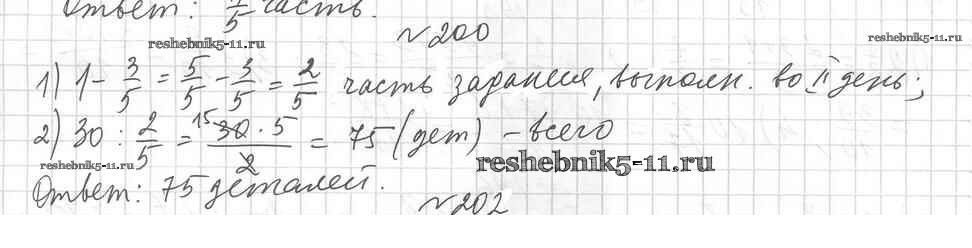 Ответ: 1/5 часть.
№200
reshebnik5-11.ru
reshebnik5-11.ru
1) 1 - 3/5 = 5/5 - 3/5 = 2/5 часть задания, выполн. во II день;
2) 30 : 2/5 = 15 30 · 5 / 2 = 75 (дет) - всего
reshebnik5-11.ru
reshebnik5-11.ru
Ответ: 75 деталей.
№202